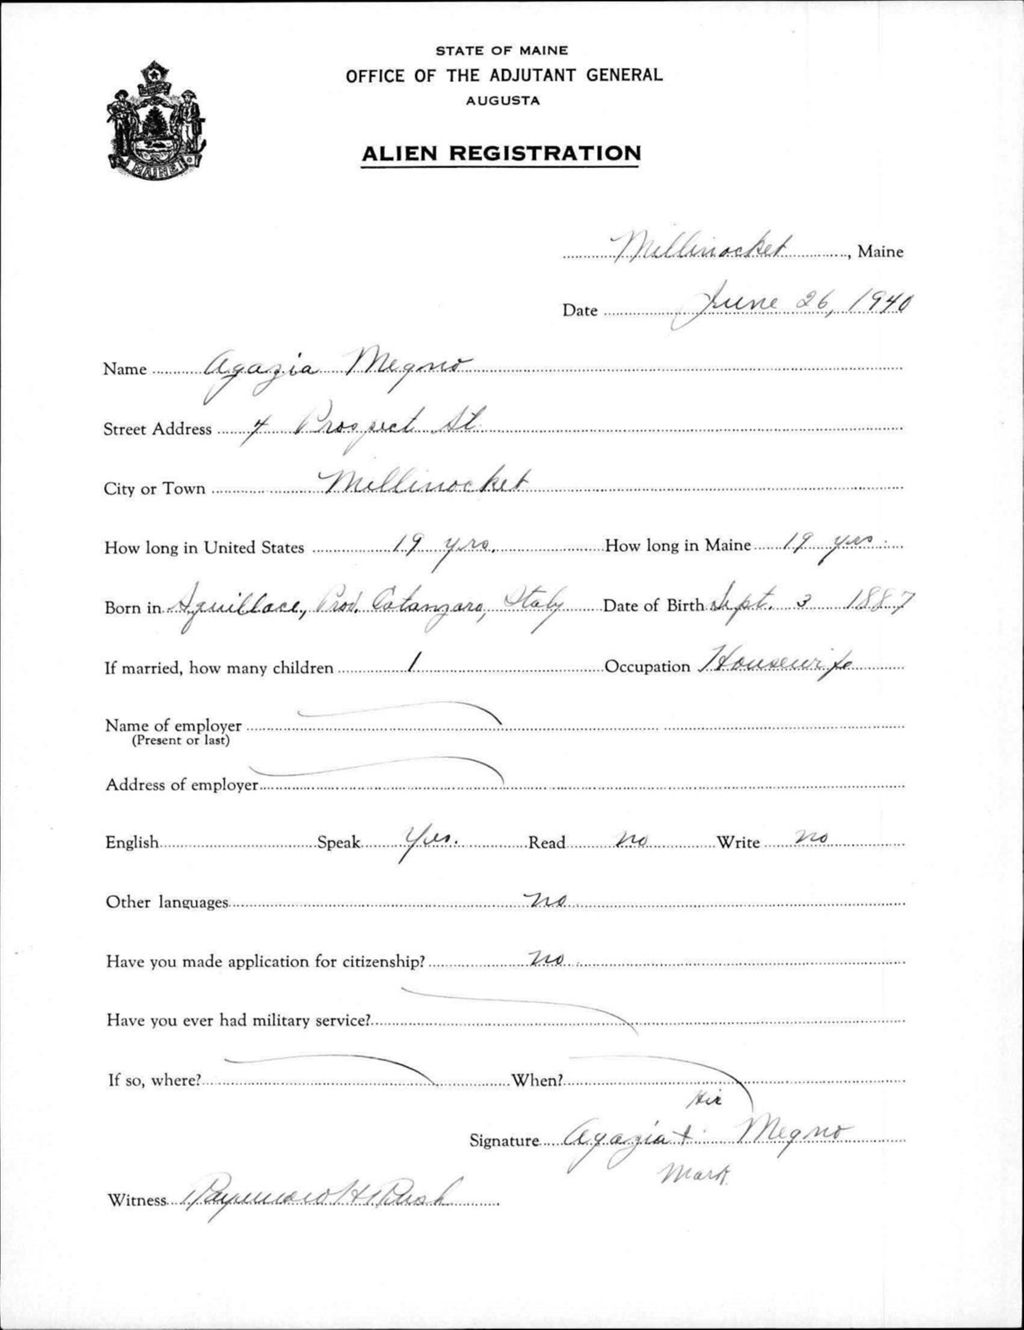 STATE OF MAINE
OFFICE OF THE ADJUTANT GENERAL
AUGUSTA
ALIEN REGISTRATION
MAINE
Millinocket, Maine
Date June 26, 1940
Name Agazia Megno
Street Address 4 Prospect St.
City or Town Millinocket
How long in United States 19 yrs. How long in Maine 19 yrs.
Born in Squillace, Prov. Catanzaro, Italy Date of Birth Sept. 3 1887
If married, how many children 1 Occupation Housewife
Name of employer
(Present or last)
Address of employer
English Speak Yes. Read no Write no
Other languages no
Have you made application for citizenship? no
Have you ever had military service?
If so, where? When?
Her
Signature Agazia + Megno
Mark
Witness Raymond H. Rush